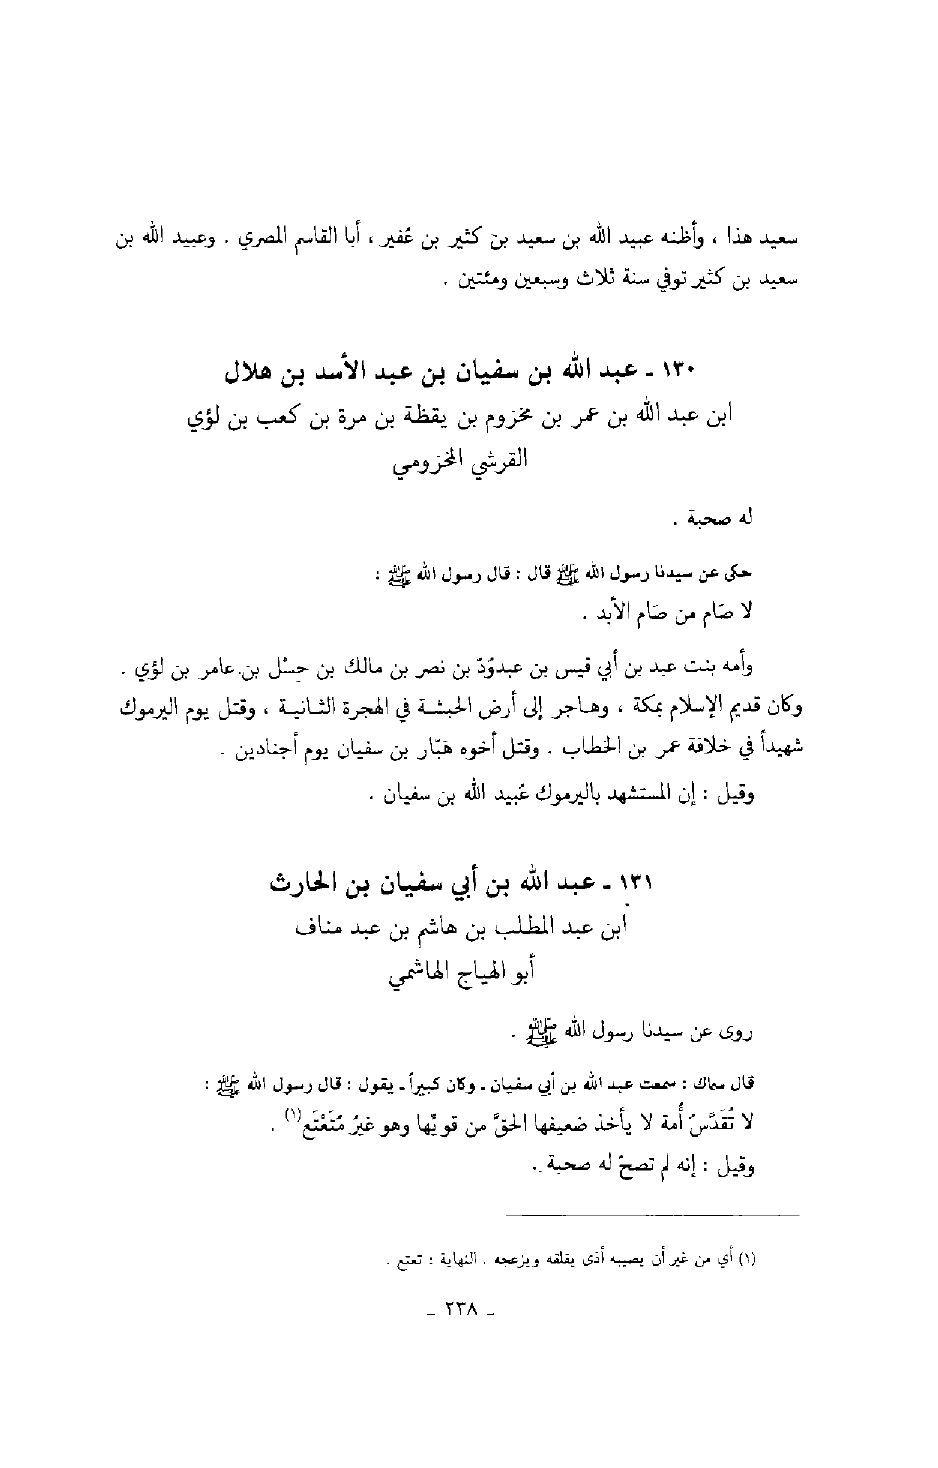 سعيد هذا ، وأظنه عبيد الله بن سعيد بن كثير بن عُفير ، أبا القاسم المصري . وعبيد الله بن
سعيد بن كثير توفي سنة ثلاث وسبعين ومئتين .
١٣٠ ـ عبد الله بن سفيان بن عبد الأسد بن هلال
ابن عبد الله بن عمر بن مخزوم بن يقظة بن مرة بن كعب بن لؤي
القرشي المخزومي
له صحبة .
حكى عن سيدنا رسول الله ﷺ قال : قال رسول الله ﷺ :
لا صَام من صَام الأبد .
وأمه بنت عبد بن أبي قيس بن عبدوُدّ بن نصر بن مالك بن حِسْل بن عامر بن لؤي .
وكان قديم الإسلام بمكة ، وهاجر إلى أرض الحبشة في الهجرة الثانية ، وقتل يوم اليرموك
شهيداً في خلافة عمر بن الخطاب . وقتل أخوه هَبّار بن سفيان يوم أجنادين .
وقيل : إن المستشهد باليرموك عُبيد الله بن سفيان .
١٣١ ـ عبد الله بن أبي سفيان بن الحارث
ابن عبد المطلب بن هاشم بن عبد مناف
أبو الهياج الهاشمي
روى عن سيدنا رسول الله ﷺ .
قال سماك : سمعت عبد الله بن أبي سفيان ـ وكان كبيراً ـ يقول : قال رسول الله ﷺ :
لا تُقَدَّسُ أُمة لا يأخذ ضعيفها الحقَّ من قويّها وهو غيرُ مُتَعْتَع(١) .
وقيل : إنه لم تصحّ له صحبة .
(١) أي من غير أن يصيبه أذى يقلقه ويزعجه . النهاية : تعتع .
ـ ٢٣٨ ـ